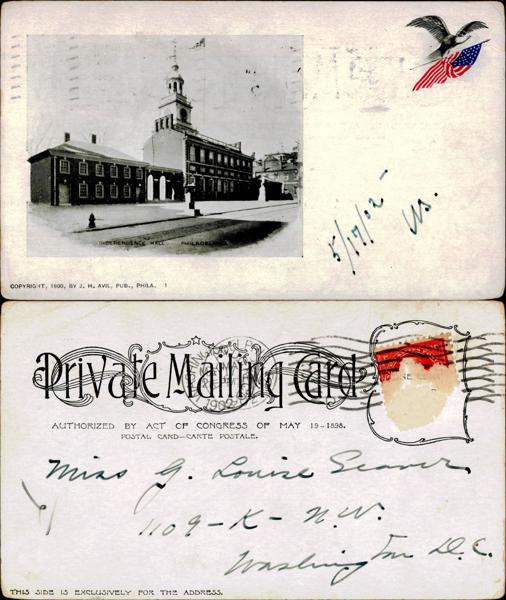 INDEPENDENCE HALL PHILADELPHIA
5/17/02 -
COPYRIGHT, 1900, BY J. H. AVIL, PUB., PHILA. 1
Private Mailing Card
1902
AUTHORIZED BY ACT OF CONGRESS OF MAY 19-1898.
POSTAL CARD—CARTE POSTALE.
Miss G. Louise Seaver
1109 - K - N.W.
Washington D.C.
THIS SIDE IS EXCLUSIVELY FOR THE ADDRESS.